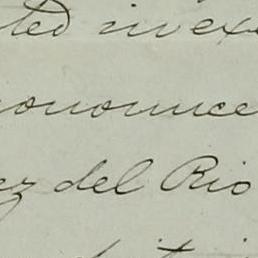 ted in ex
onounce
ez del Rio